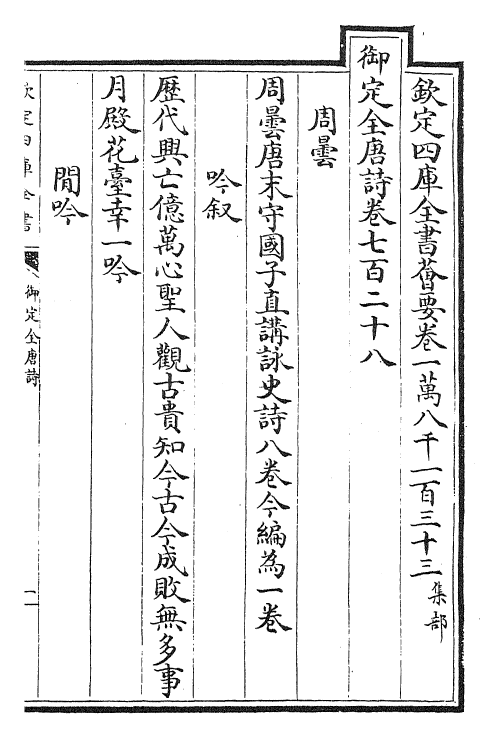 欽定四庫全書薈要卷一萬八千一百三十三 集部
御定全唐詩卷七百二十八
周曇
周曇唐末守國子直講詠史詩八卷今編為一卷
吟叙
歷代興亡億萬心聖人觀古貴知今古今成敗無多事
月殿花臺幸一吟
閒吟
欽定四庫全書
御定全唐詩